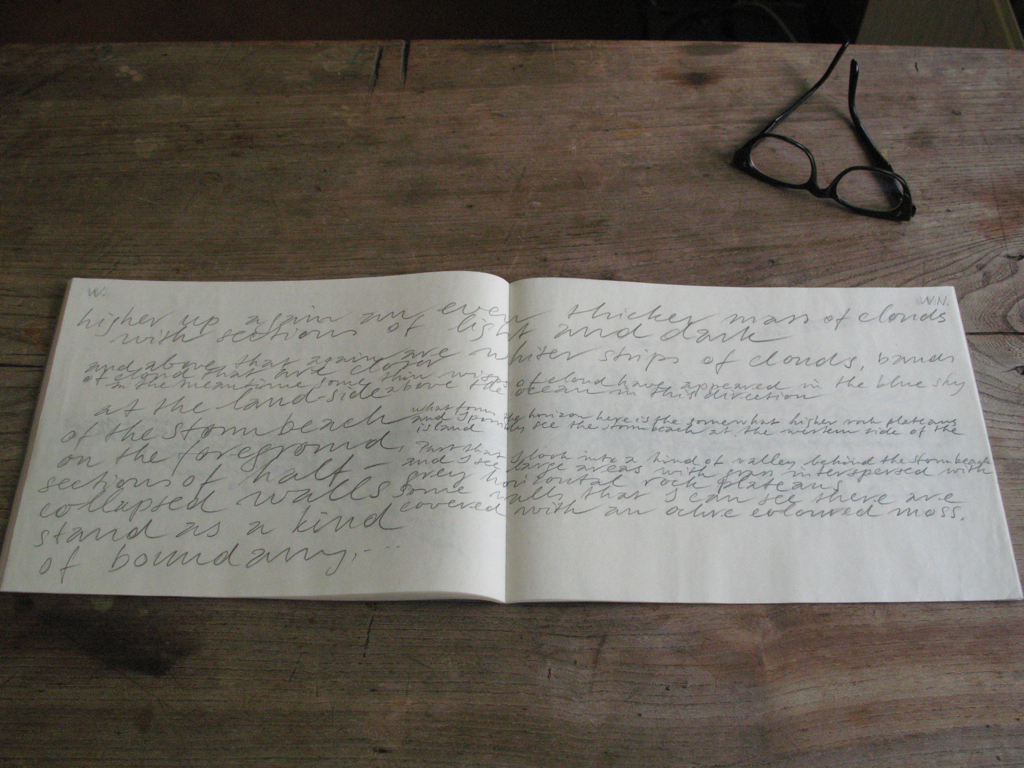 W.
W.N.
higher up again an even thicker mass of clouds
with sections of light and dark
and above that again are whiter strips of clouds, bands
of cloud that are closer
in the meantime some thin wisps of cloud have appeared in the blue sky
above the ocean in this direction
at the land-side
of the stormbeach
on the foreground,
sections of half-
collapsed walls
stand as a kind
of boundary,...
what forms the horizon here is the somewhat higher rock plateaus
and I possibly see the stormbeach at the western side of the
island
Past that I look into a kind of valley behind the stormbeach
and I see large areas with grass interspersed with
grey horizontal rock plateaus
some walls that I can see there are
covered with an olive coloured moss.